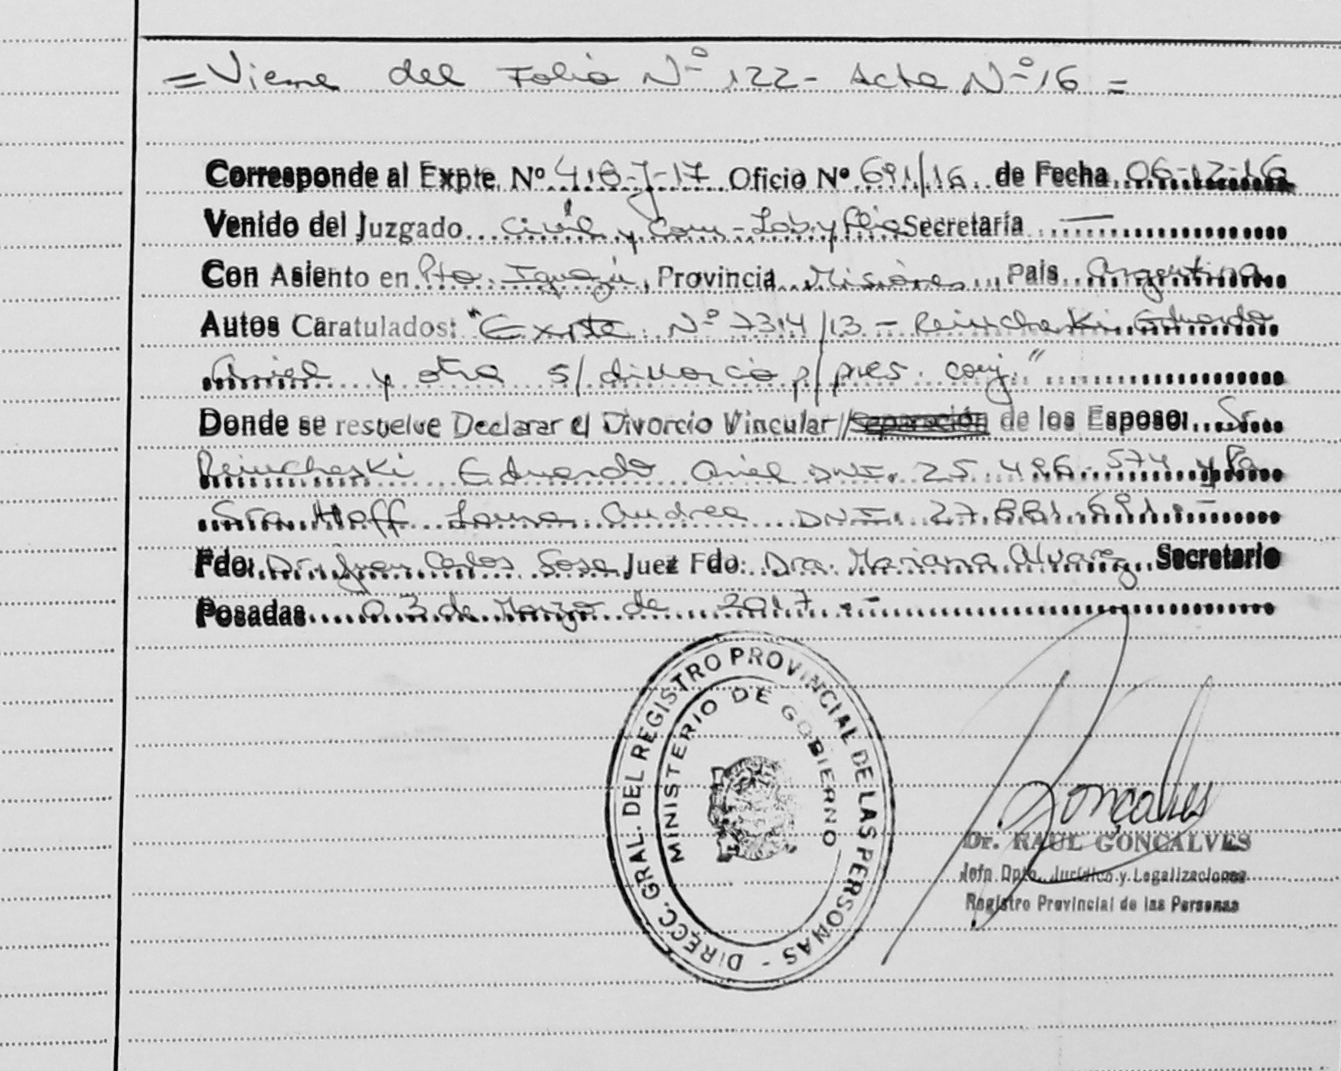 = Viene del Folio Nº 122 - Acta Nº 16 =
Corresponde al Expte. Nº 418-J-17 Oficio Nº 691/16 de Fecha 06-12-16
Venido del Juzgado Civil y Com - Lab y Flia Secretaría —
Con Asiento en Pto. Iguazú, Provincia Misiones País Argentina
Autos Caratulados: "Expte Nº 7314/13 - Reincheski Eduardo
Ariel y otra s/ divorcio p/ pres. conj."
Donde se resuelve Declarar el Divorcio Vincular // Separación de los Esposos Sr.
Reincheski Eduardo Ariel DNI. 25.486.574 y la
Sra. Hoff Laura Andrea DNI. 27.881.691.-
Fdo: Dr. Juan Carlos Sosa Juez Fdo: Dra. Mariana Alvarez Secretario
Posadas 03 de Marzo de 2017.-
DIRECC. GRAL. DEL REGISTRO PROVINCIAL DE LAS PERSONAS -
MINISTERIO DE GOBIERNO
Gonçalves
Dr. RAUL GONÇALVES
Jefe Dpto. Jurídico y Legalizaciones
Registro Provincial de las Personas